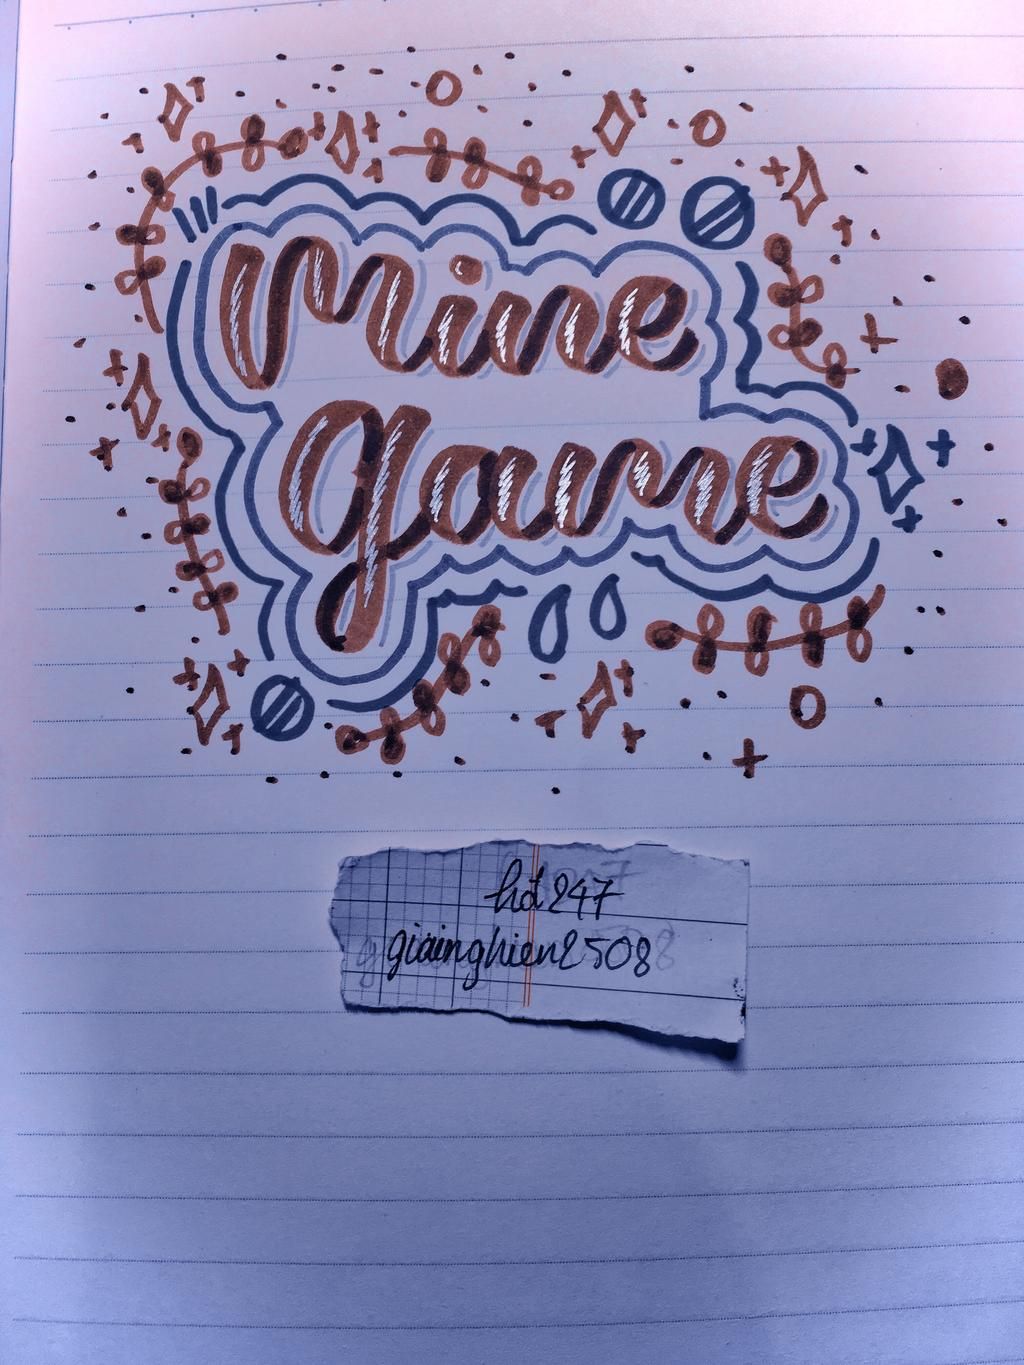 Mine
Game
hđ247
giainghien2508